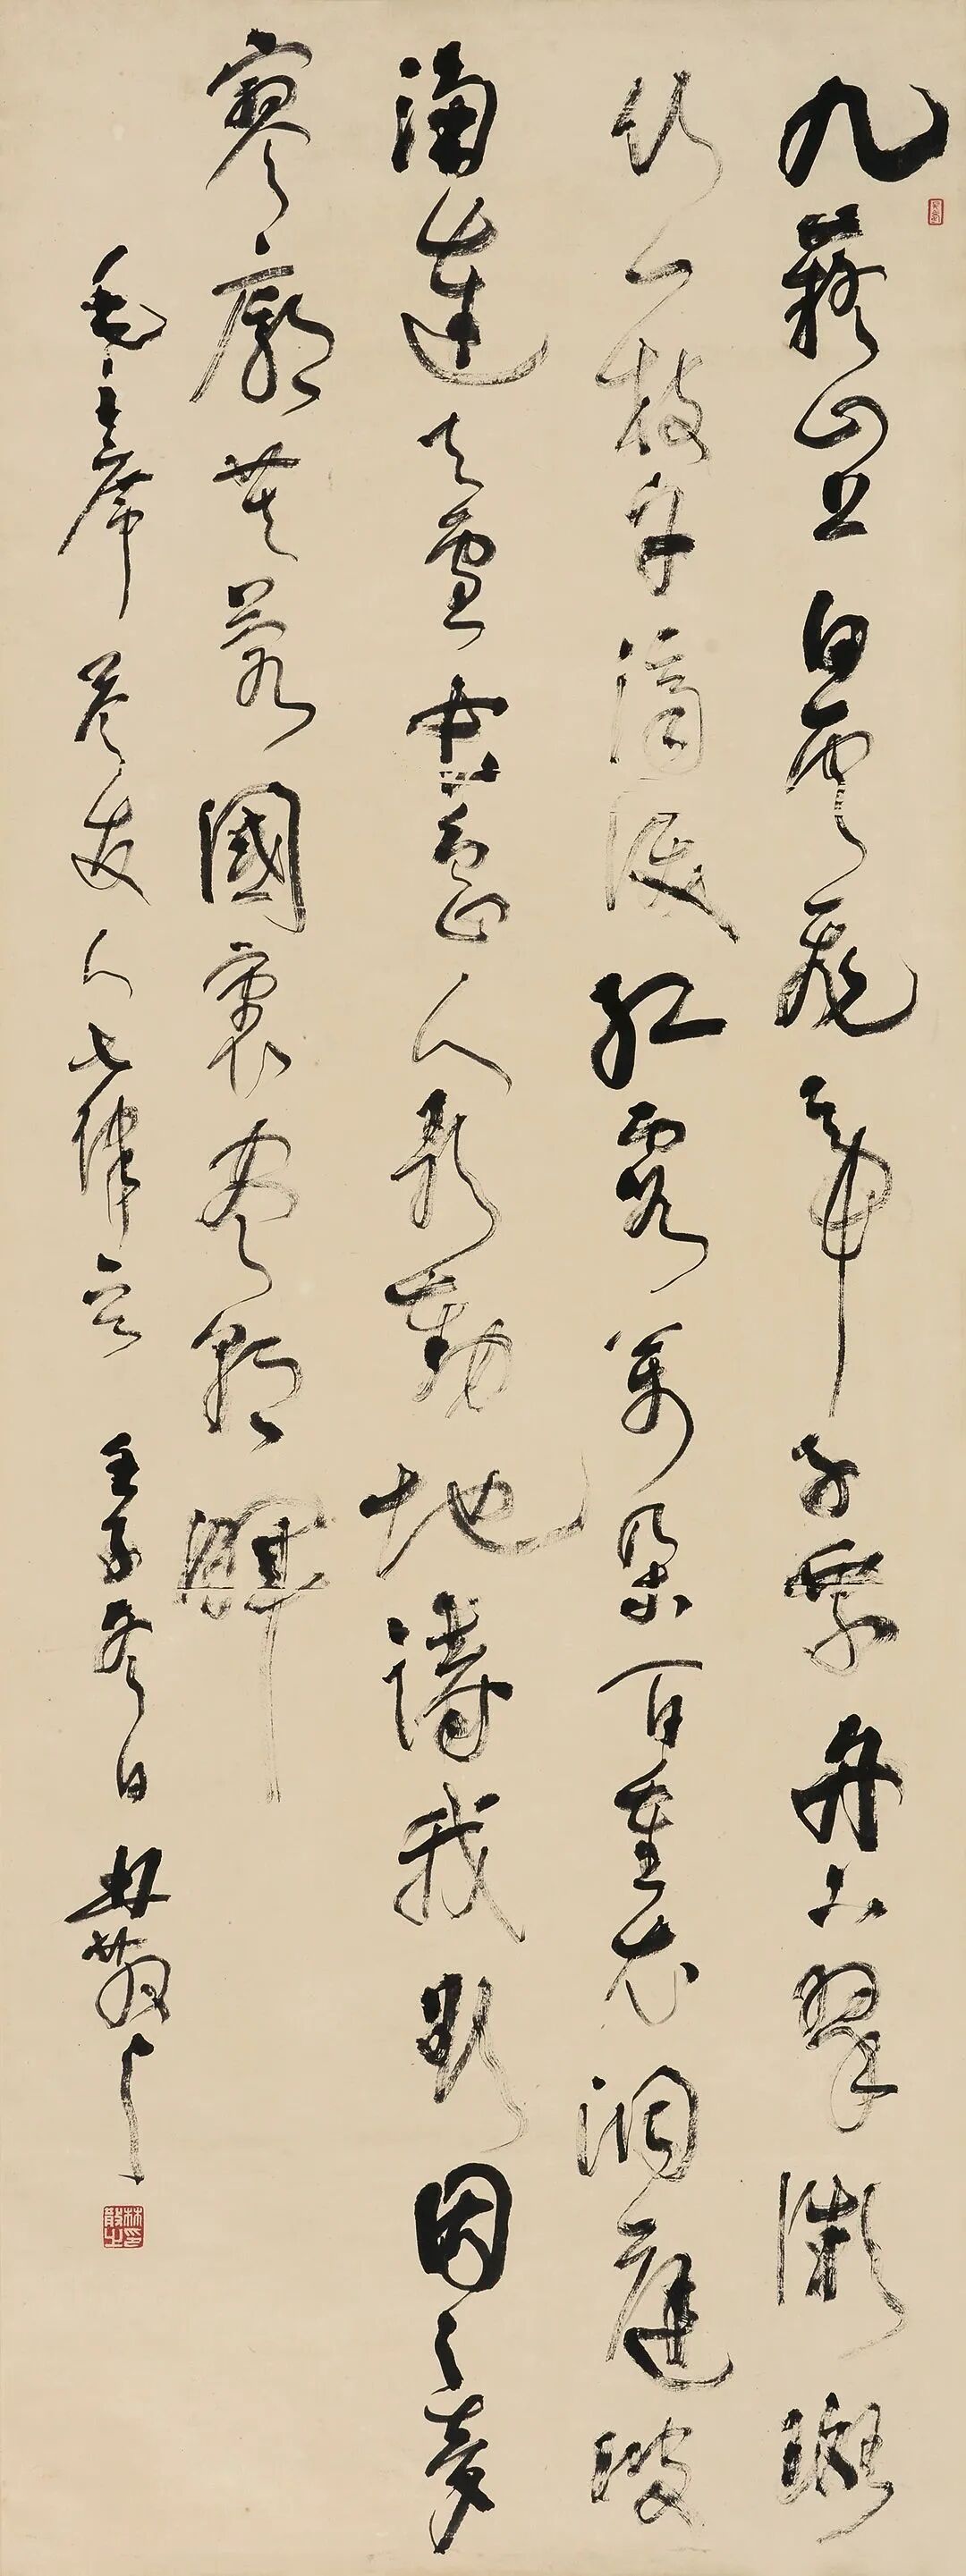 九嶷山上白雲飛帝子乘風下翠微斑
竹一枝千滴淚紅霞萬朵百重衣洞庭波
涌連天雪長島人歌動地詩我欲因之夢
寥廓芙蓉國裏盡朝暉
毛主席答友人七律一首 壬子冬日 林散耳
林散之印